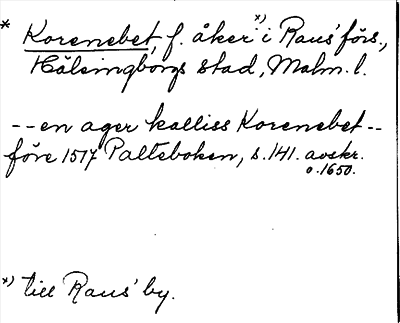 * Korenebet, f. åker *) i Raus' förs.,
Hälsingborgs stad, Malm. l.
--en ager kalliss Korenebet--
före 1517 Palteboken, s. 141. avskr.
o. 1650.
*) till Raus' by.